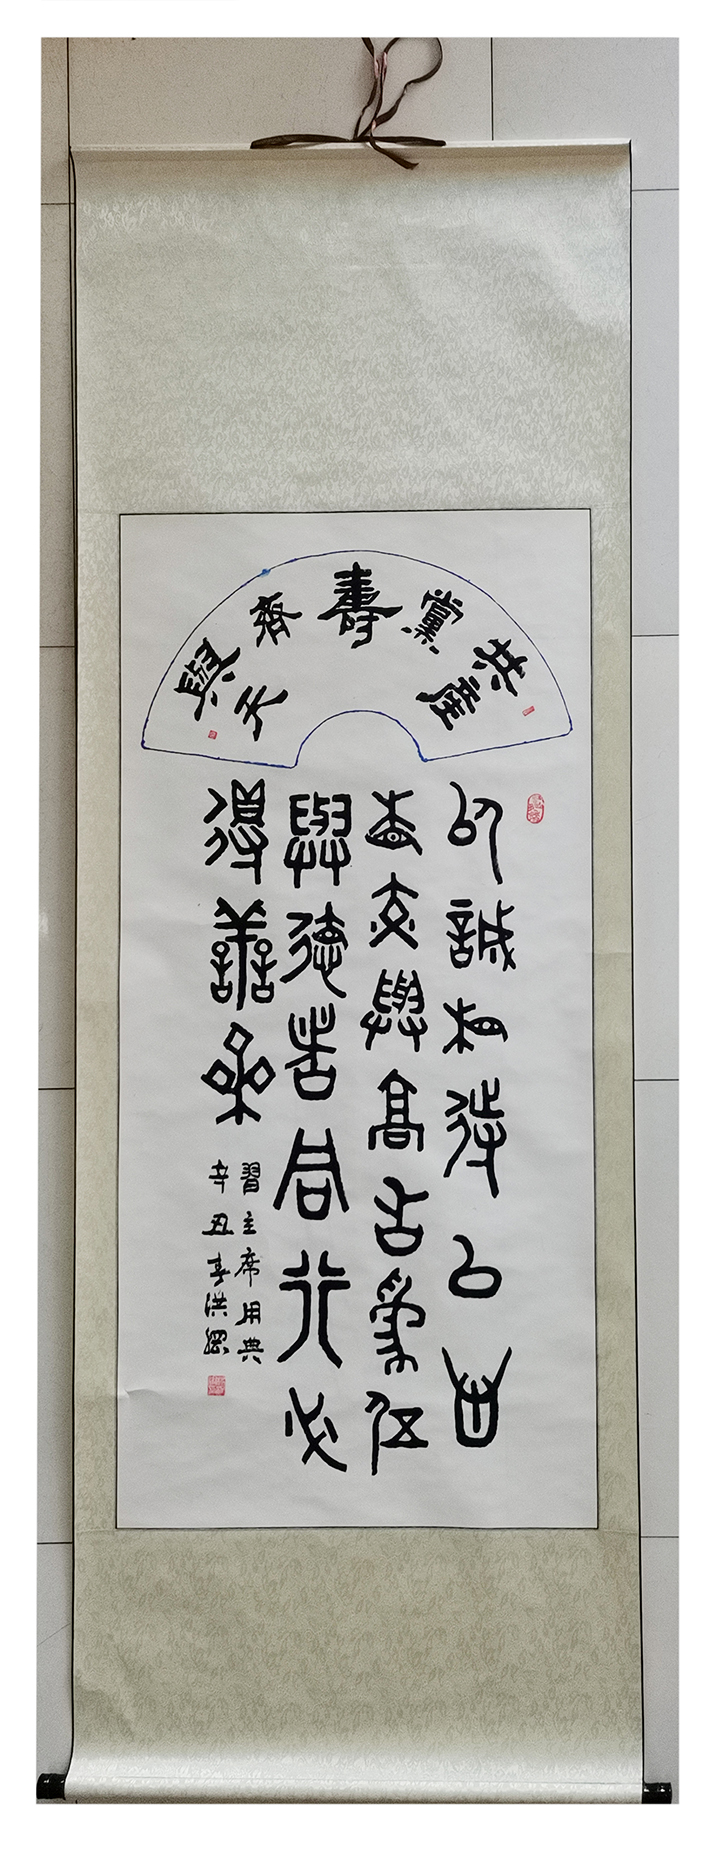 共產黨壽齊與天
以誠相待以心
相交與高為伍
與德者同行必
得善果
習主席用典
辛丑春洪